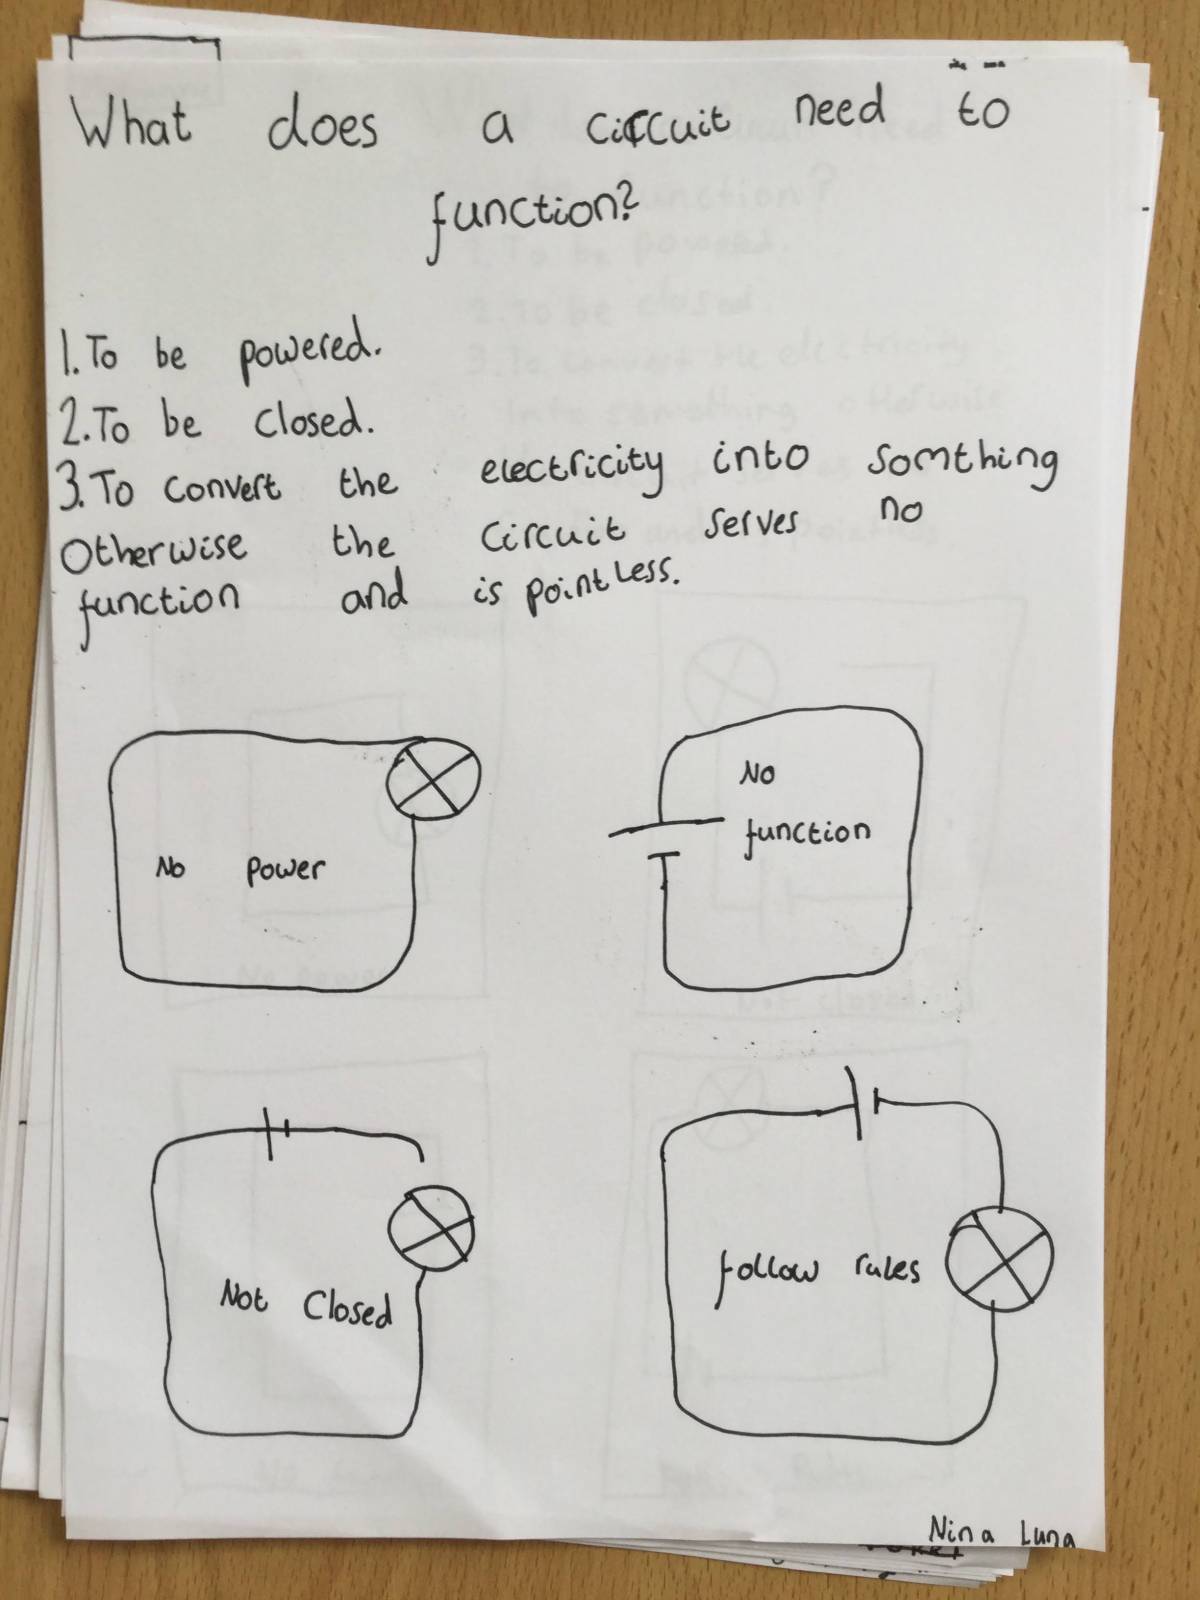 What does a circuit need to
function?
1. To be powered.
2. To be closed.
3. To convert the electricity into somthing
otherwise the circuit serves no
function and is pointless.
No power
No
function
Not Closed
follow rules
Nina Luna